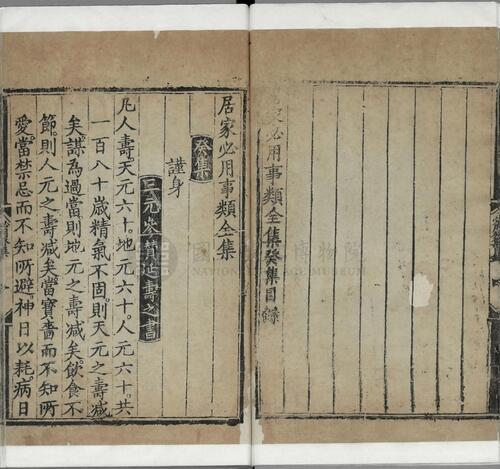 居家必用事類全集癸集目錄
居家必用事類全集
癸集
謹身
三元參贊延壽之書
凡人壽天元六十地元六十人元六十共
一百八十歲精氣不固則天元之壽減
矣謀為過當則地元之壽減矣飲食不
節則人元之壽減矣當寶嗇而不知所
愛當禁忌而不知所避神日以耗病日
NATIONAL PALACE MUSEUM